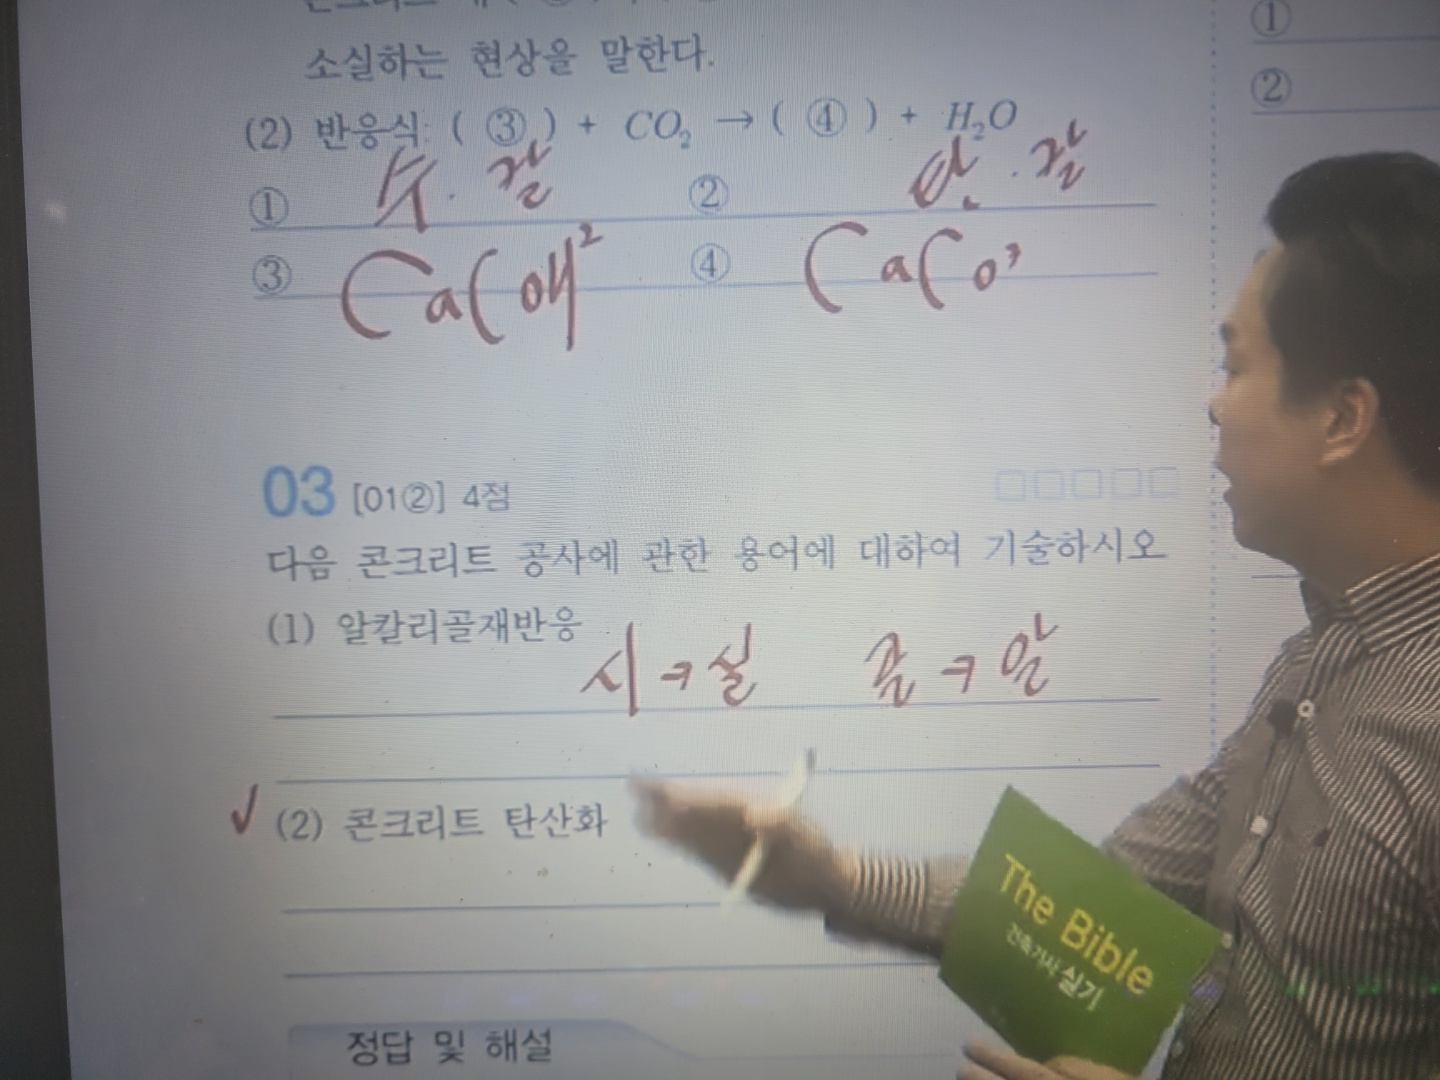 소실하는 현상을 말한다.
(2) 반응식: ( ③ ) + CO₂ → ( ④ ) + H₂O
① 수·칼 ②
알·칼
③ CaC ② ④ CaCo³
①
②
03 [01②] 4점
다음 콘크리트 공사에 관한 용어에 대하여 기술하시오
(1) 알칼리골재반응
시 실 골 알
✓ (2) 콘크리트 탄산화
The Bible
건축기사 실기
정답 및 해설